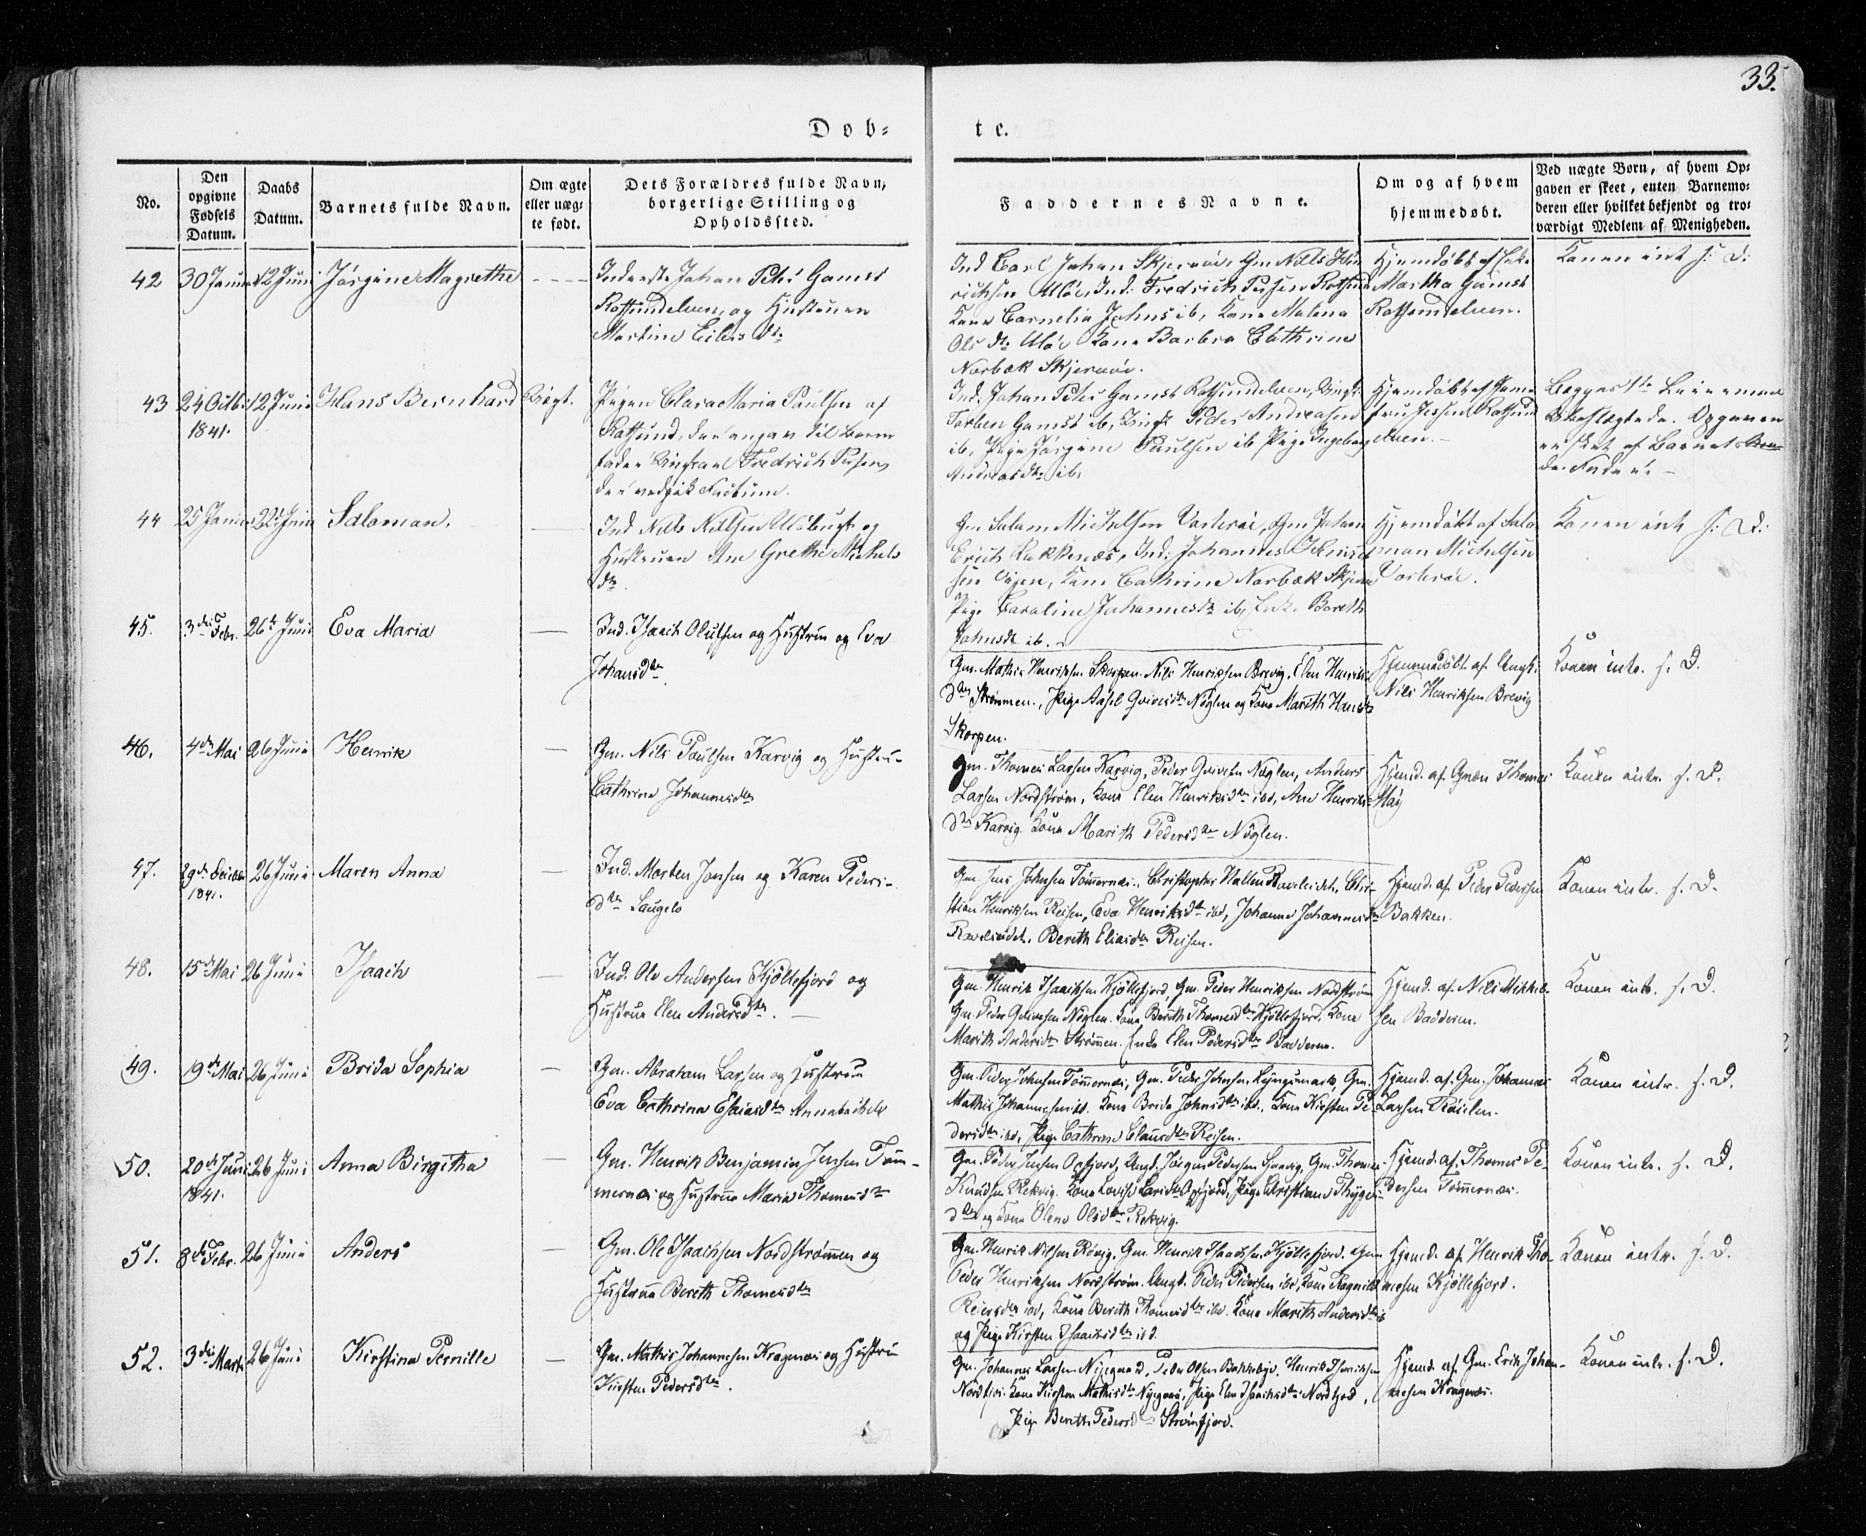 33.
Døb= te.
No.
Den opgivne Fødsels Datum.
Daabs Datum.
Barnets fulde Navn.
Om ægte eller uægte født.
Dets Forældres fulde Navn, borgerlige Stilling og Opholdssted.
Faddernes Navne.
Om og af hvem hjemmedøbt.
Ved uægte Børn, af hvem Opgaven er skeet, enten Barnemoderen eller hvilket bekjendt og troværdigt Medlem af Menigheden.
42 30 Januar 12 Juni Jørgine Magrethe
Inderste Johan Peter Gamst
Rotsundelven, og Hustruen
Martine Eilers dtr
Ind Carl Johan Skjervøe, Gm Nils
Uløe, Ind: Fredrich Rotsund
Kone Cornelia Johns ib, Kone Malena
Ols dtr Uløe Kone Barbra Cathrine
Norbæk Skjervøe.
Hjemdøbt af
Martha Gamst
Rotsundelven.
Konen int f: D:
43 24 Octb: 1841. 12 Juni Hans Bernhard Uægt.
Pigen Clara Maria Paulsen af
Rotsund, der angav til Barne
fader Ungkarl Fredrich
der vedgik Factum.
Ind, Johan Peter Gamst Rotsundelven, Ungk:
Torben Gamst ib, Ungk Peder Andreasen
ib, Pige Jørgine Paulsen ib Pige Ingeborg
Andreas dtr ib.
Hjemdøbt af
Jessen Rotsund
elven.
Begges 1te Leiermaal
Opgaven
er skeet af Barnets
Fader.
44 25 Januar 22 Juni Saloman.
Ind Nils Nilsen og
Hustruen Ane Grethe Mikels
dtr.
Gm Salam Michelsen Vorterøe, Gm Johan
Erich Rakkenæs, Ind: Johannes
Kone Cathrine Norbæk Skjervøe
Pige Caroline Johannesdtr ib, Enke Bereth
Johnsdtr ib.
Hjemdøbt af Salo
man Michelsen
Vorterøe.
Konen int f: D:
45. 3die Febr. 26de Juni Eva Maria
Ind. Isach Olufsen og Hustrue og Eva
Johansdtr.
Gm. Mathis Henriksen Skorpen. Nils Henriksen Brevig, Elen Henriks-
dtr Strømmen., Pige Aasel Qvivisdtr Nøglen og Kone Mareth Hansdtr
Skorpen.
Hjemmedøbt af Ungk.
Nils Henriksen Brevig
Konen intr. f. D.
46. 4de Mai 26 Juni Henrik
Gm. Nils Paulsen Karvig og Hustru-
Cathrina Johannesdtr
Gm. Thomas Larsen Karvig, Peder Qvivesen Nøglen, Anders
Larsen Nordstrøm, Kone Elen Henriksdtr ibd, Ane Henriks-
dtr Karvig. Kone Marith Pedersdtr Nøglen.
Hjemd. af. Gm Thomas
Mäy
Konen intr. f. D.
47. 29de 1841. 26 Juni Maren Anna
Ind. Morten Jonsen og Karen Peders-
dtr Saugels
Gm. Jens Johnsen Tømmernæs., Christopher Hallen Raveleidet, Chri-
stian Henriksen Reisen, Eva Henriksdtr ibd, Johanne Johannesdtr
Raveleidet, Bereth Eliasdtr Reisen.
Hjemd. af. Peder Pedersen
Bakken.
Konen intr. f. D.
48. 15de Mai 26 Juni Isaach
Ind. Ole Andersen Kjøllefjord og
Hustrue Elen Andersdtr.
Gm. Henrik Isaaksen Kjøllefjord, Gm. Peder Henriksen Nordstrøm
Gm. Peder Qvivesen Nøglen. Kone Bereth Thomesdtr Kjøllefjord. Kone
Marith Andersdtr Strømmen. Enke Elen Pedersdtr Badderen.
Hjemd. af. Nils Mikkel-
sen Badderen.
Konen intr. f. D.
49. 19de Mai 26 Juni Brida Sophia
Gm. Abraham Larsen og Hustrue
Eva Cathrina Esaiasdtr
Gm. Peder Johnsen Tømmernæs, Gm. Peder Johnsen Lyngsmark, Gm.
Mathis Johannesen ibd. Kone Brida Johnsdtr ibd., Kone Kirsten Pe-
dersdtr ibd, Pige Cathrine Clausdtr Reisen.
Hjemd. af. Gm. Johannes
Larsen Röielen.
Konen intr. f. D.
50. 20de Juni 1841. 26 Juni Anna Birgitha
Gm. Henrik Benjamin Jensen Tøm-
mernæs og Hustrue Maria Thomesdtr
Gm. Peder Jensen Oxfjord, Ungk. Jørgen Pedersen Gravig, Gm. Thomas
Knudsen Rekvig. Kone Lovise Oxfjord, Pige Christiane Thyges-
dtr og Kone Olene Olsdtr Rekvig.
Hjemd. af. Thomes Pe-
dersen Tømmernæs.
Konen intr. f. D.
51. 8de Febr. 26 Juni Anders
Gm. Ole Isaachsen Nordstrømmen og
Hustrue Bereth Thomesdtr
Gm. Henrik Nilsen Røvig. Gm. Henrik Isaachsen Kjøllefjord. Gm
Peder Henriksen Nordstrøm. Ungk. Peder Pedersen ibd, Kone Ragnild
Reiersdtr ibd, Kone Bereth Thomesdtr ibd. Kone Marith Andersdtr ib
og Pige Kirsten Isaachsdtr ibd.
Hjemd. af. Henrik Tho-
mesen Kjøllefjord.
Konen intr. f. D.
52. 3die Marts 26 Juni Kirstina Pernille
Gm. Mathis Johannesen Kragenæs og Hustru
Kirsten Pedersdtr.
Gm. Johannes Larsen, Peder Olsen Bakkeby, Henrik Isachsen
Kone Kirsten Mathisdtr, Pige Elen Isaachsdtr
Pige Bereth Pedersd Strømfjord.
Hjemd. af Gm. Erik Johan-
nesen Kragenæs.
Konen intr. f. D.